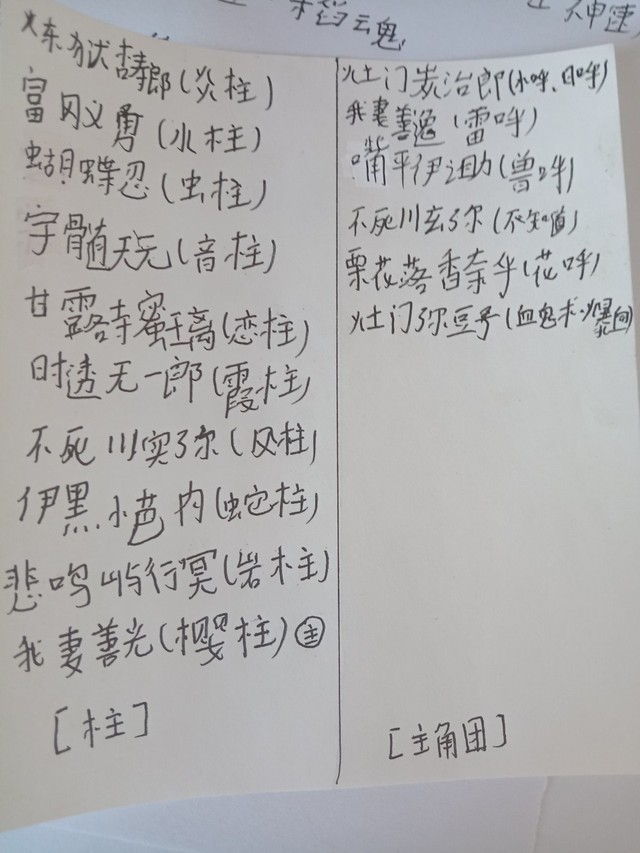 稻云鬼
神速)
炼狱杏寿郎(炎柱)
富冈义勇(水柱)
蝴蝶忍(虫柱)
宇髓天元(音柱)
甘露寺蜜璃(恋柱)
时透无一郎(霞柱)
不死川实弥(风柱)
伊黑小芭内(蛇柱)
悲鸣屿行冥(岩柱)
我妻善光(樱柱)主
[柱]
灶门炭治郎(水呼、日呼)
我妻善逸(雷呼)
嘴平伊之助(兽呼)
不死川玄弥(不知道)
栗花落香奈乎(花呼)
灶门弥豆子(血鬼术·爆血)
[主角团]